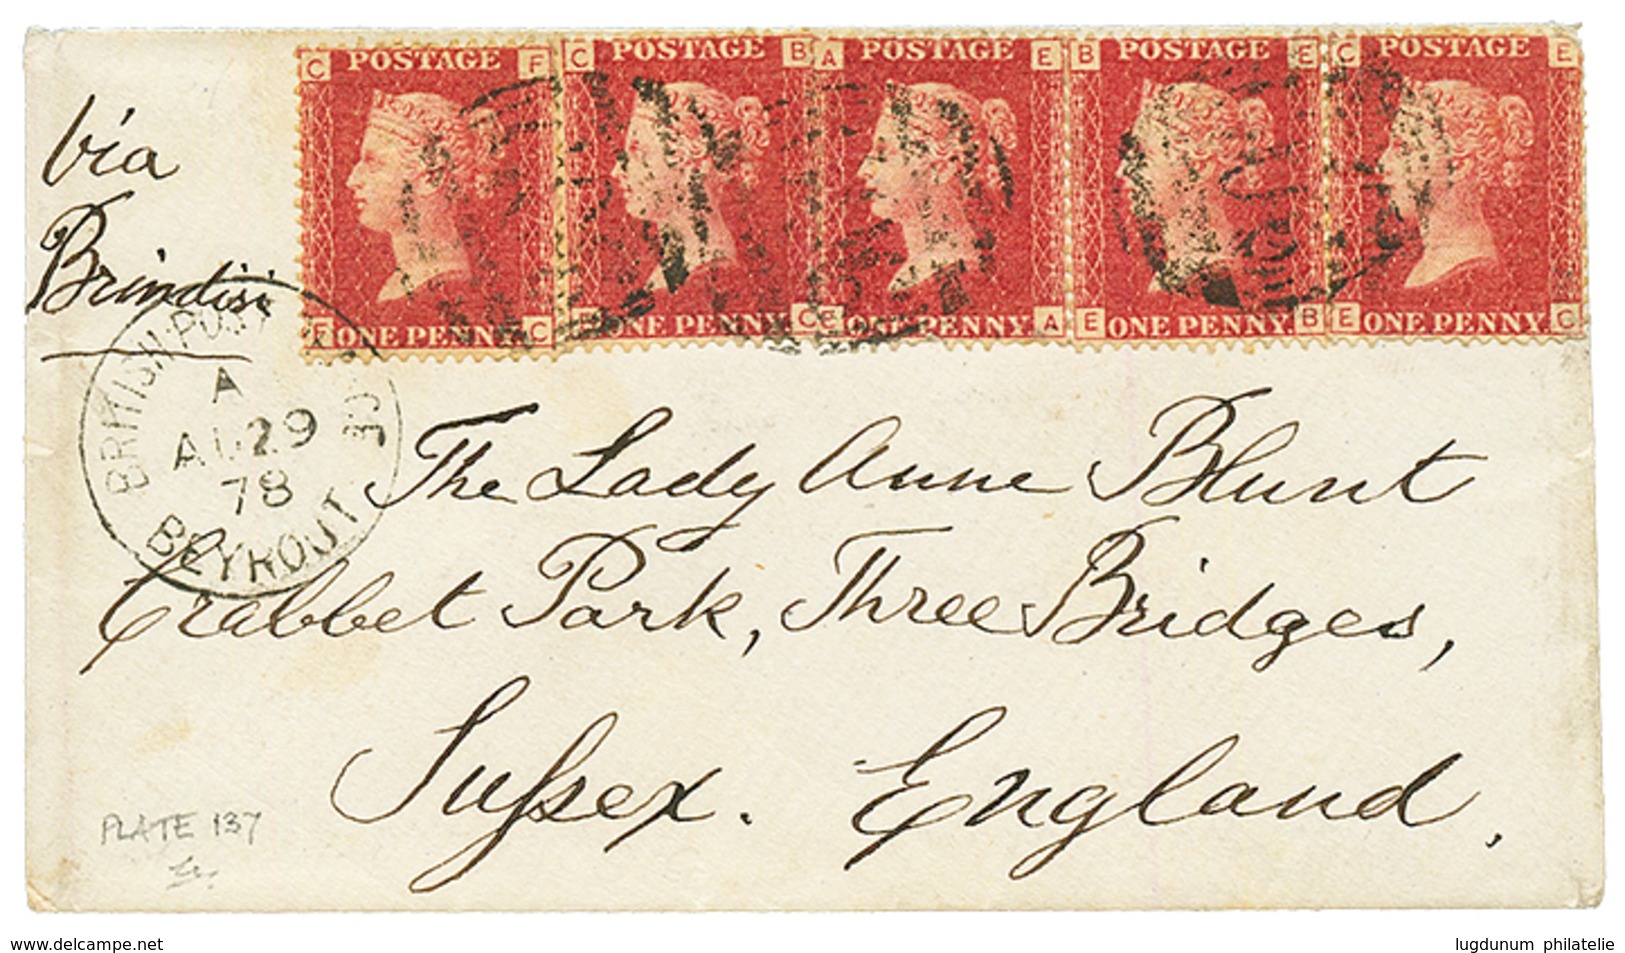 C POSTAGE F
C POSTAGE B
A POSTAGE E
B POSTAGE E
C POSTAGE E
F ONE PENNY. C
ONE PENNY. C
ONE PENNY. A
E ONE PENNY. B
E ONE PENNY. C
Via
Brindisi
BRITISH POST OFFICE
A
AU 29
78
BEYROUT
The Lady Anne Blunt
Crabbet Park, Three Bridges,
Sussex. England.
PLATE 137
www.delcampe.net
lugdunum philatelie